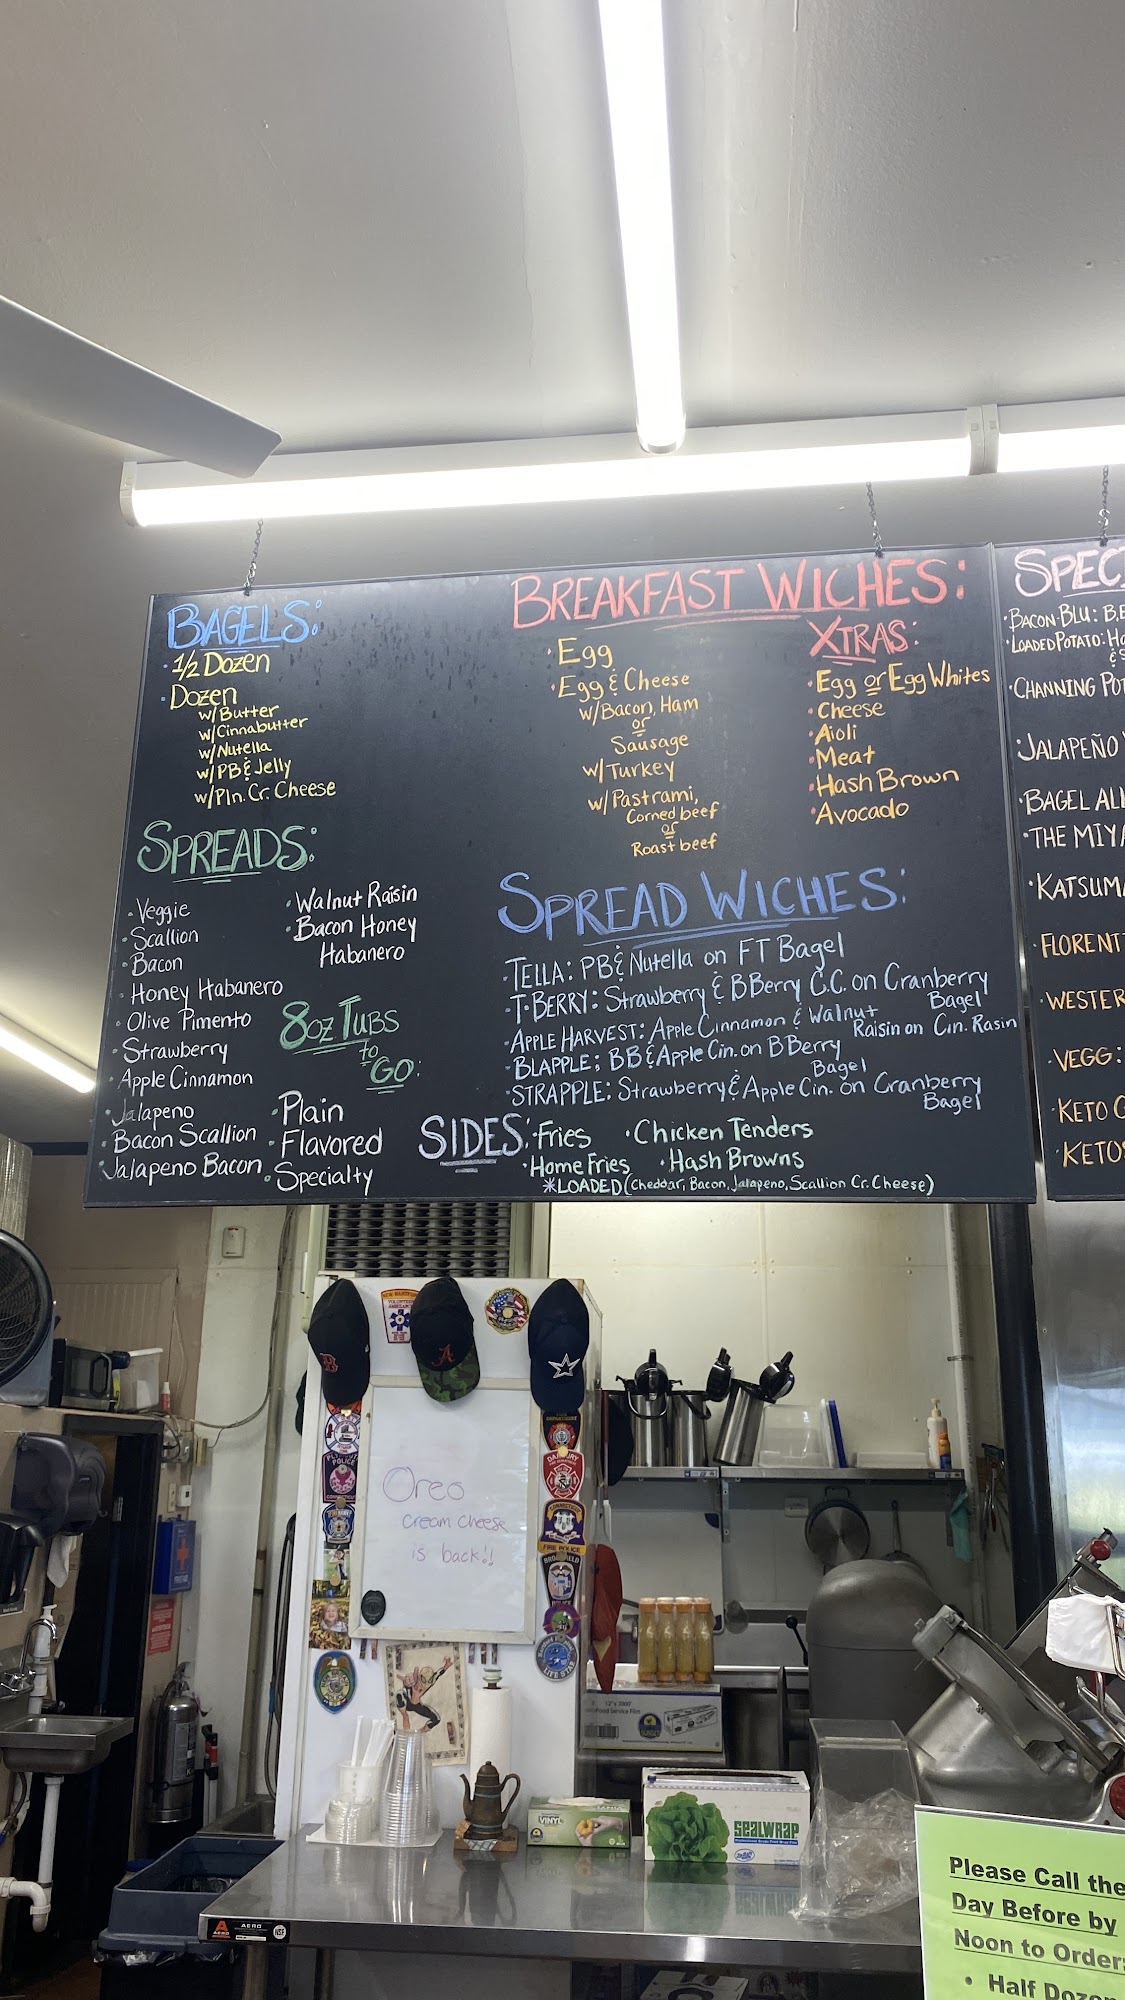 BAGELS:
· 1/2 Dozen
· Dozen
w/Butter
w/Cinnabutter
w/Nutella
w/PB & Jelly
w/Pln. Cr. Cheese
SPREADS:
· Veggie
· Scallion
· Bacon
· Honey Habanero
· Olive Pimento
· Strawberry
· Apple Cinnamon
· Jalapeno
· Bacon Scallion
· Jalapeno Bacon
· Walnut Raisin
· Bacon Honey
Habanero
8oz Tubs
to
GO:
· Plain
· Flavored
· Specialty
BREAKFAST WICHES:
· Egg
· Egg & Cheese
w/Bacon, Ham
or
Sausage
w/Turkey
w/Pastrami,
Corned beef
or
Roast beef
XTRAS:
· Egg or Egg Whites
· Cheese
· Aioli
· Meat
· Hash Brown
· Avocado
SPREAD WICHES:
· TELLA: PB & Nutella on FT Bagel
· T-BERRY: Strawberry & BBerry C.C. on Cranberry
Bagel
· APPLE HARVEST: Apple Cinnamon & Walnut
Raisin on Cin. Rasin
· BLAPPLE: BB & Apple Cin. on BBerry
Bagel
· STRAPPLE: Strawberry & Apple Cin. on Cranberry
Bagel
SIDES:
· Fries
· Chicken Tenders
· Home Fries
· Hash Browns
*LOADED (Cheddar, Bacon, Jalapeno, Scallion Cr. Cheese)
SPEC
· BACON-BLU:
· LOADED POTATO:
· CHANNING
· JALAPEÑO
· BAGEL
· THE
· KATSUM
· FLORENT
· WESTER
· VEGG:
· KETO
· KETO
Oreo
cream cheese
is back!!
B
A
POLICE
DANBURY
CONNECTICUT
FIRE POLICE
LIFE STAR
12" x 2000'
Food Service Film
VINYL
SEALWRAP
A
AERO
AERO
NSF
Please Call the
Day Before by
Noon to Order:
• Half Dozen